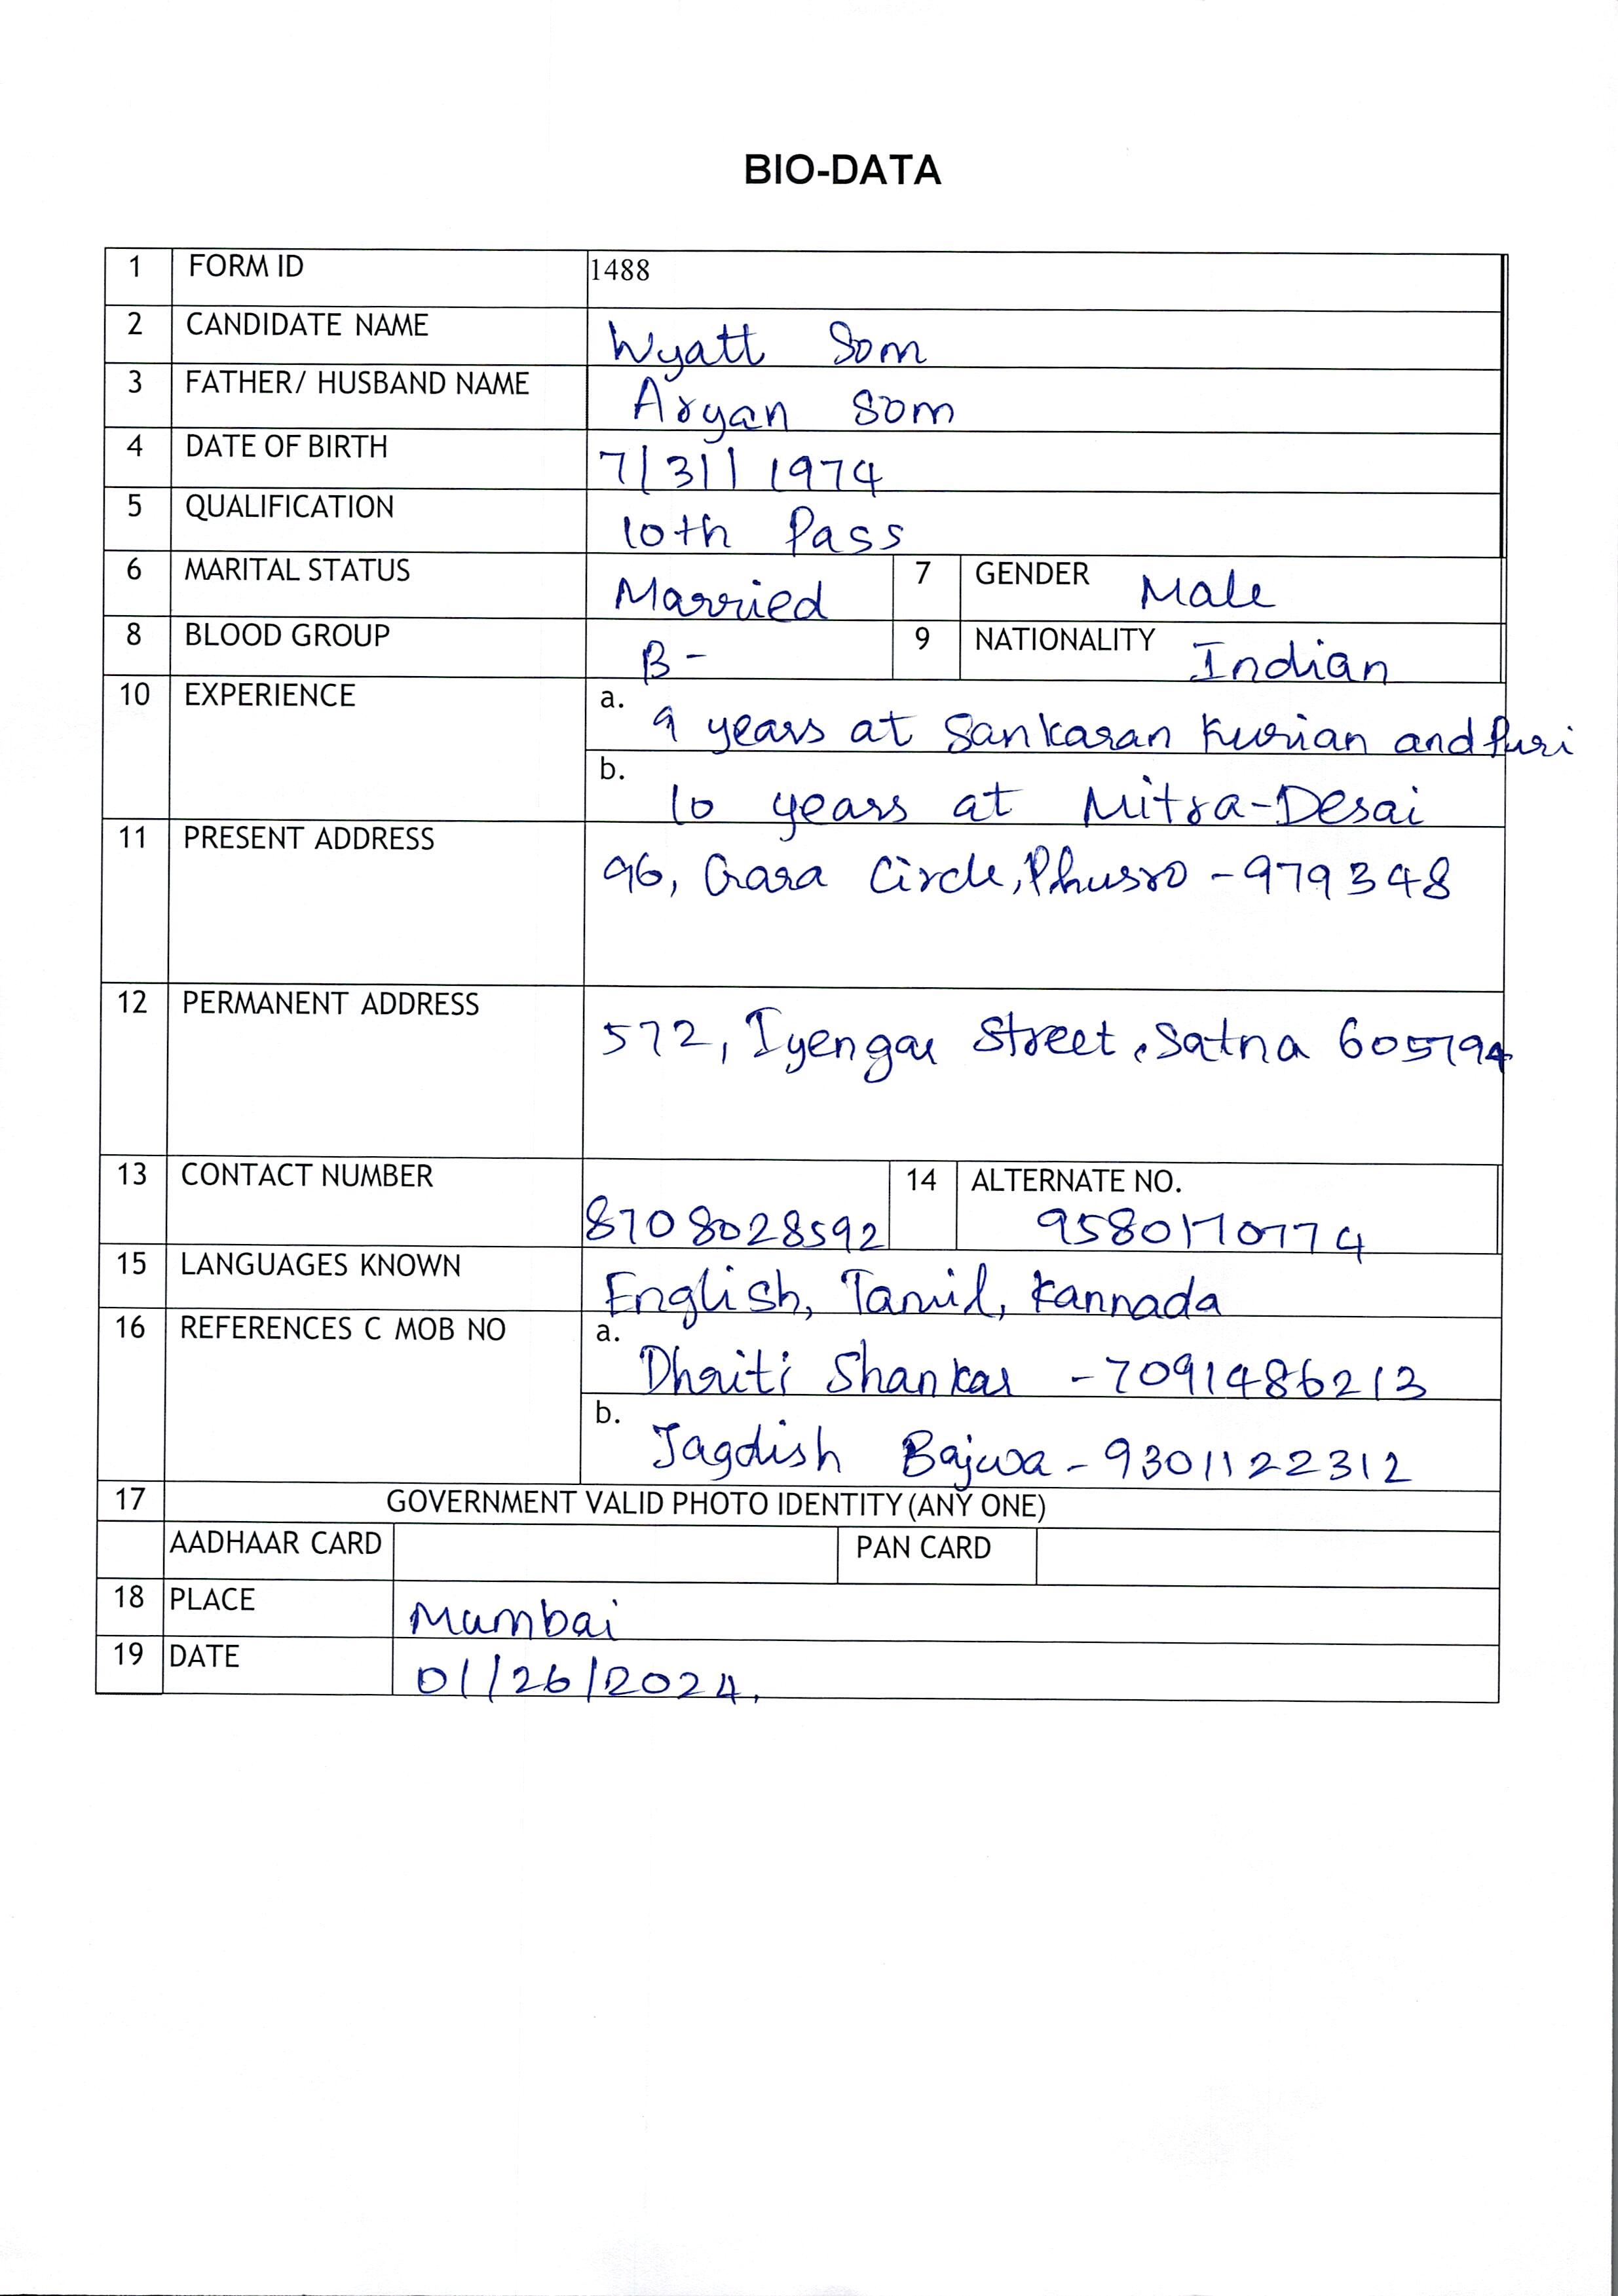 BIO-DATA
1 FORM ID 1488
2 CANDIDATE NAME Wyatt Som
3 FATHER/ HUSBAND NAME Aryan Som
4 DATE OF BIRTH 7/31/1974
5 QUALIFICATION 10th Pass
6 MARITAL STATUS Married 7 GENDER Male
8 BLOOD GROUP B- 9 NATIONALITY Indian
10 EXPERIENCE a. 9 years at Sankaran Kurian and Puri
b. 10 years at Mitra-Desai
11 PRESENT ADDRESS 96, Gara Circle, Phusro - 979348
12 PERMANENT ADDRESS 572, Iyengar Street, Satna 605794
13 CONTACT NUMBER 8708028592 14 ALTERNATE NO. 9580170774
15 LANGUAGES KNOWN English, Tamil, Kannada
16 REFERENCES C MOB NO a. Dhriti Shankar - 7091486213
b. Jagdish Bajwa - 9301122312
17 GOVERNMENT VALID PHOTO IDENTITY (ANY ONE)
AADHAAR CARD PAN CARD
18 PLACE Mumbai
19 DATE 01/26/2024.